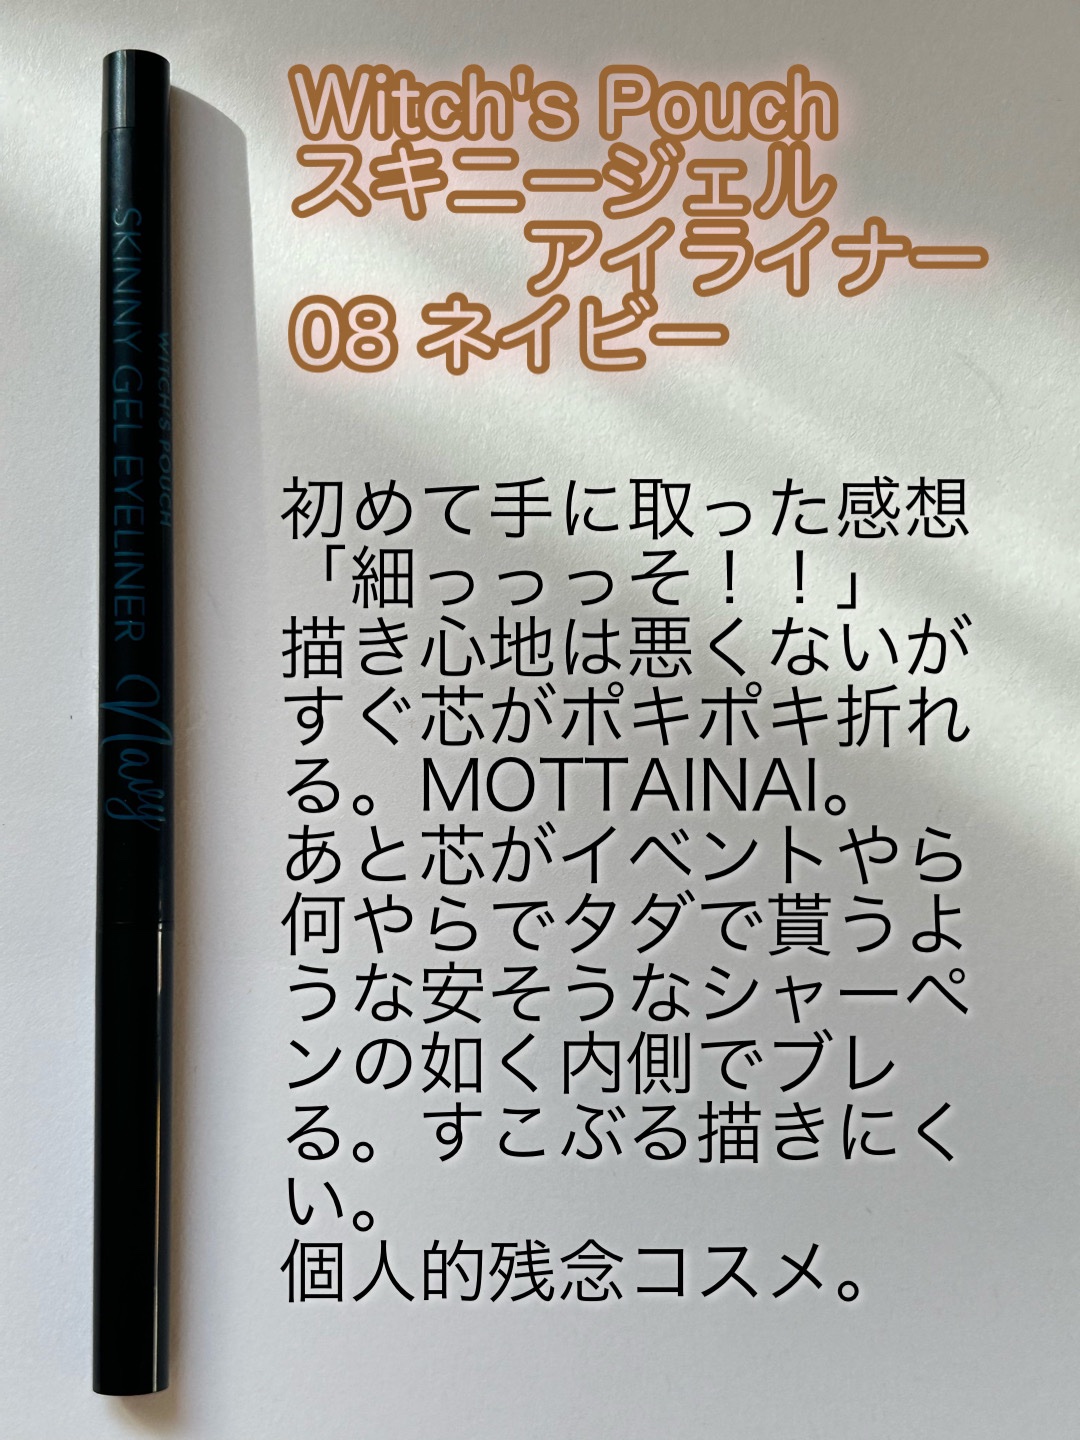 Witch's Pouch
スキニージェル
アイライナー
08 ネイビー
初めて手に取った感想
「細っっっそ！！」
描き心地は悪くないが
すぐ芯がポキポキ折れ
る。MOTTAINAI。
あと芯がイベントやら
何やらでタダで貰うよ
うな安そうなシャーペ
ンの如く内側でブレ
る。すこぶる描きにく
い。
個人的残念コスメ。
WITCH'S POUCH
SKINNY GEL EYELINER Navy